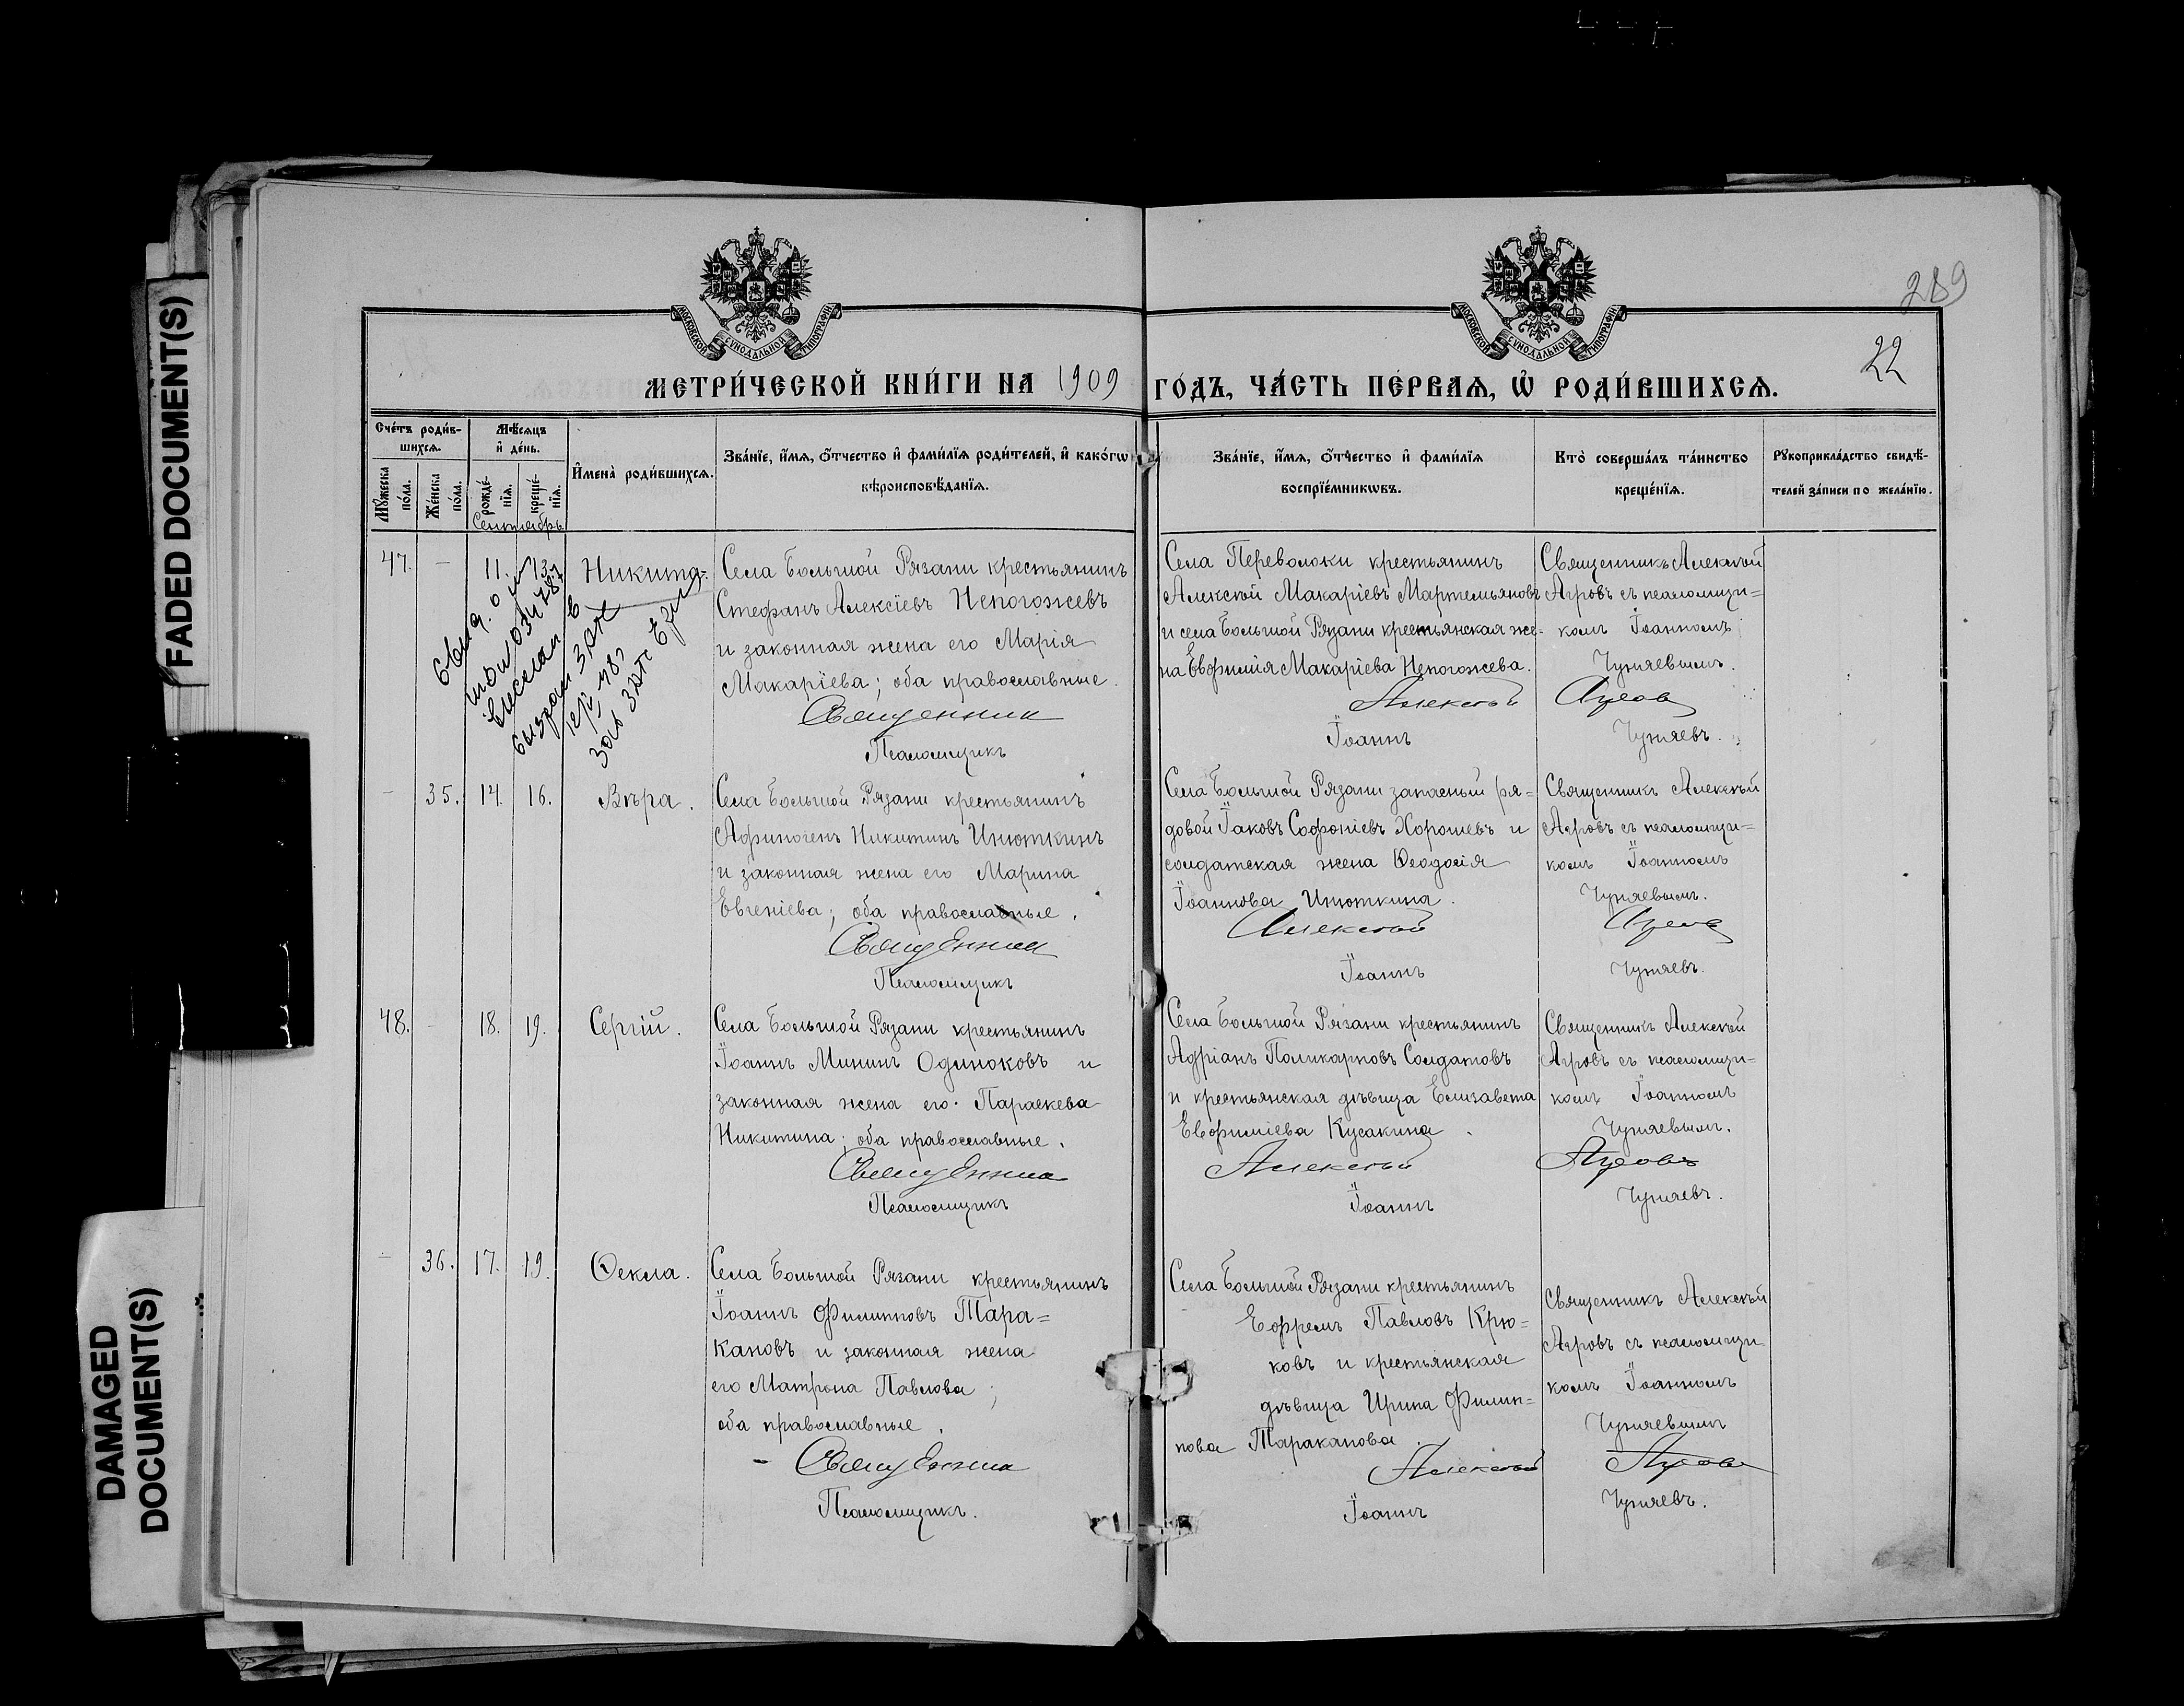 FADED DOCUMENT(S)
DAMAGED
DOCUMENT(S)
289
22
МОСКОВСКОЙ СУНОДАЛЬНОЙ ТИПОГРАФІИ
МОСКОВСКОЙ СУНОДАЛЬНОЙ ТИПОГРАФІИ
МЕТРИ́ЧЕСКОЙ КНИ́ГИ НА 1909 ГО́ДЪ, ЧА́СТЬ ПЕ́РВАѦ, Ѡ҆ РОДИ́ВШИХСѦ.
Сче́тъ роди́в-
шихсѧ.
Мꙋ́жеска
по́ла.
Же́нска
по́ла.
Мѣ́сѧцъ
и҆ де́нь.
рожде́-
нїѧ.
креще́-
нїѧ.
И҆мена̀ роди́вшихсѧ.
Зва́нїе, и҆́мѧ, ѻ҆́тчество и҆ фами́лїѧ роди́телей, и҆ како́гѡ
вѣроисповѣ́данїѧ.
Зва́нїе, и҆́мѧ, ѻ҆́тчество и҆ фами́лїѧ
воспрїе́мникѡвъ.
Кто̀ соверша́лъ та́инство
креще́нїѧ.
Рꙋкоприкла́дство свидѣ́-
телей за́писи по жела́нїю.
Сентябрь
47.
-
11.
13.
Никита.
Села Большой Рязани крестьянинъ
Стефанъ Алексіевъ Непогожевъ
и законная жена его Марія
Макаріева; оба православные.
Священник
Псаломщикъ
Села Переволоки крестьянинъ
Алексѣй Макаріевъ Мартемьяновъ
и села Большой Рязани крестьянская же-
на Евфимія Макаріева Непогожева.
Алексѣй
Іоаннъ
Священникъ Алексѣй
Агровъ съ псаломщи=
комъ Іоанномъ
Чуняевымъ.
Агров
Чуняевъ.
-
35.
14.
16.
Вѣра.
Села Большой Рязани крестьянинъ
Афиногенъ Никитинъ Инюткинъ
и законная жена его Марина
Евгеніева; оба православные.
Священник
Псаломщикъ
Села Большой Рязани запасный ря=
довой Іаковъ Софоніевъ Хорошевъ и
солдатская жена Ѳеодосія
Іоаннова Инюткина.
Алексѣй
Іоаннъ
Священникъ Алексѣй
Агровъ съ псаломщи=
комъ Іоанномъ
Чуняевымъ.
Агров
Чуняевъ.
48.
-
18.
19.
Сергій.
Села Большой Рязани крестьянинъ
Іоаннъ Мининъ Одиноковъ и
законная жена его Параскева
Никитина; оба православные.
Священник
Псаломщикъ
Села Большой Рязани крестьянинъ
Адріанъ Поликарповъ Солдатовъ
и крестьянская дѣвица Елизавета
Евфиміева Кусакина.
Алексѣй
Іоаннъ
Священникъ Алексѣй
Агровъ съ псаломщи=
комъ Іоанномъ
Чуняевымъ.
Агровъ
Чуняевъ.
-
36.
17.
19.
Ѳекла.
Села Большой Рязани крестьянинъ
Іоаннъ Филипповъ Тара=
кановъ и законная жена
его Матрона Павлова;
оба православные.
Священник
Псаломщикъ.
Села Большой Рязани крестьянинъ
Ефремъ Павловъ Крю=
ковъ и крестьянская
дѣвица Ирина Филип=
пова Тараканова.
Алексѣй
Іоаннъ
Священникъ Алексѣй
Агровъ съ псаломщи
комъ Іоанномъ
Чуняевымъ
Агров
Чуняевъ.